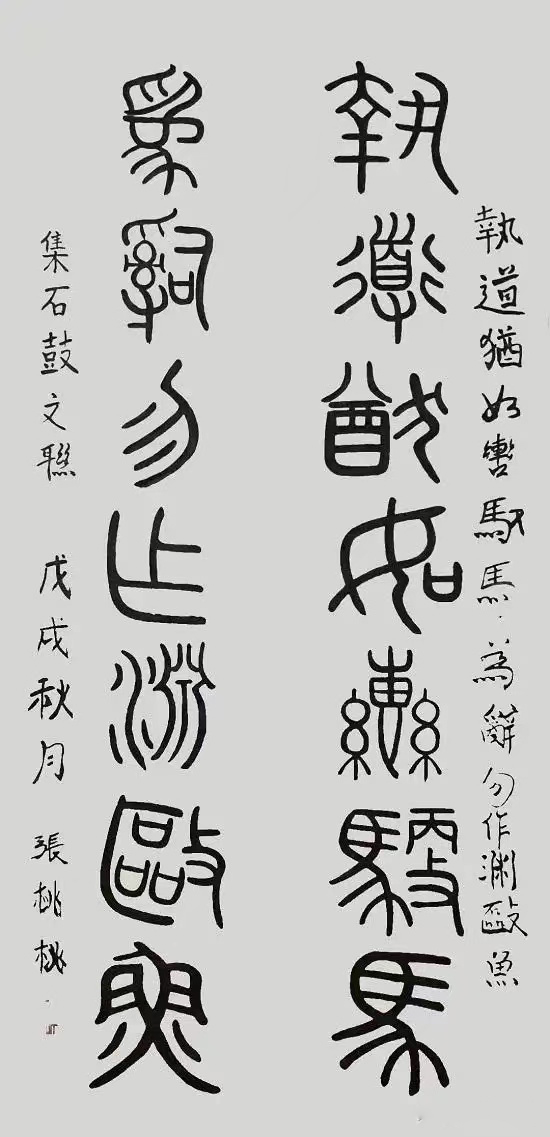 執道猶如轡馭馬
執道猶如轡馭馬、為辭勿作淵敺魚
為辭勿作淵敺魚
集石鼓文聯 戊戌秋月 張桃桃